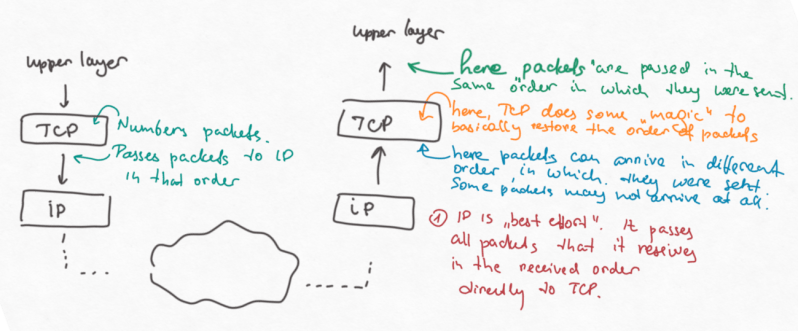 upper layer
TCP
Numbers packets.
Passes packets to IP
in that order
IP
upper layer
here „packets" are passed in the
same order in which they were sent.
TCP
here, TCP does some „magic" to
basically restore the order of packets
here packets can arrive in different
order, in which they were sent.
Some packets may not arrive at all.
IP
① IP is „best effort". It passes
all packets that it receives
in the received order
directly to TCP.